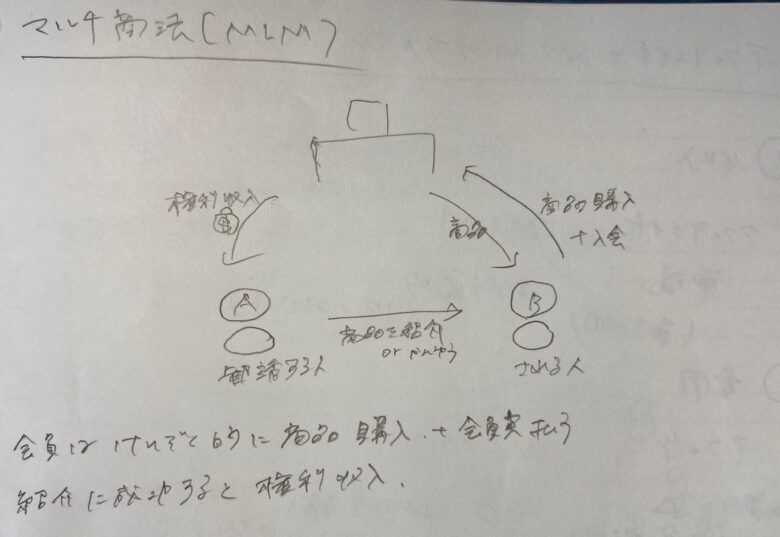 マルチ商法(MLM)
権利収入
$
商品
商品購入
+入会
A
B
商品を紹介
or
勧誘する人
される人
会員はけいぞく的に商品購入.+会員費払う
紹介に成功すると権利収入.